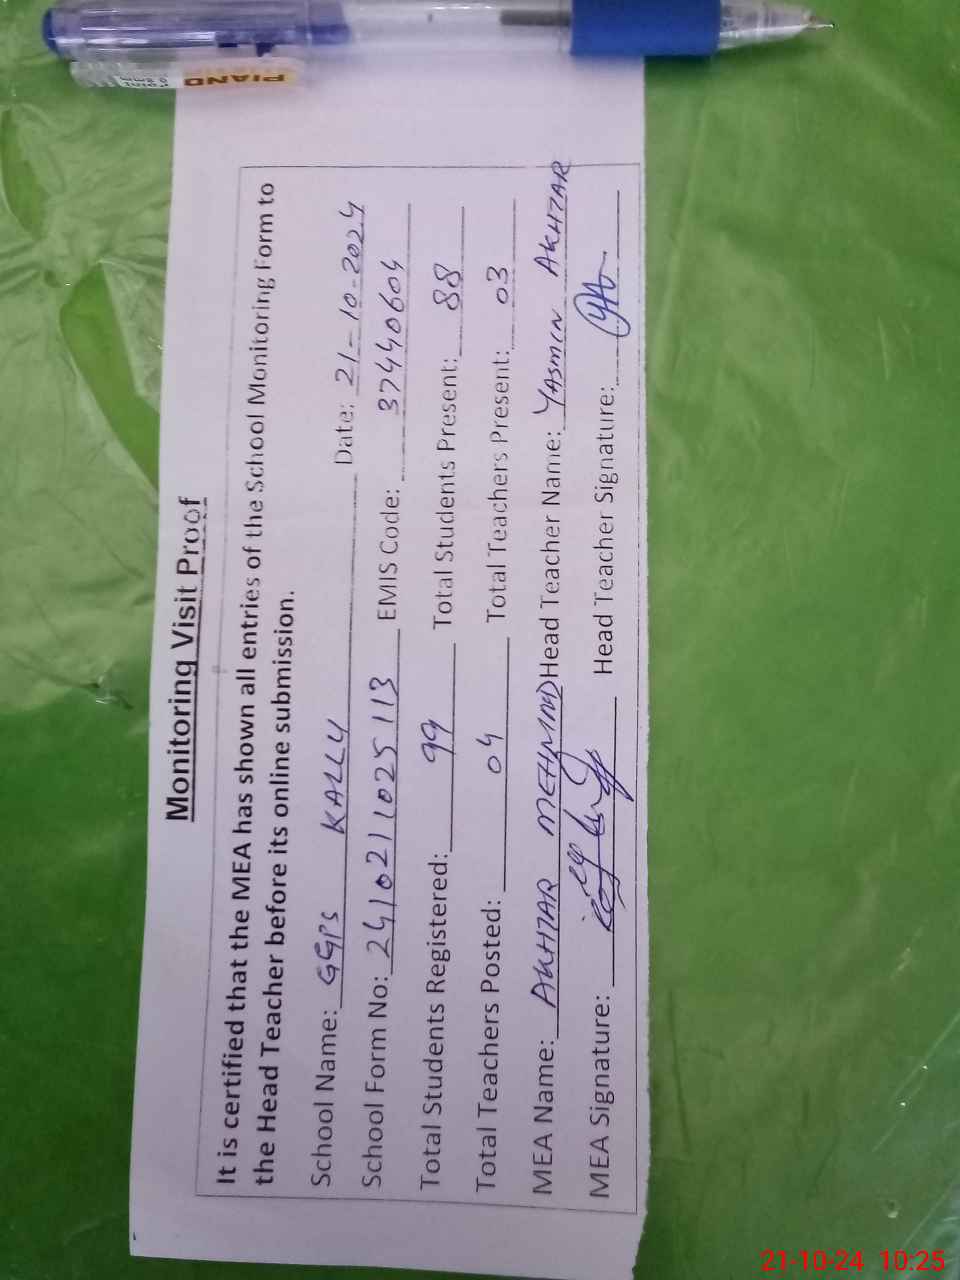 PIANO
Point
0.8mm
Monitoring Visit Proof
It is certified that the MEA has shown all entries of the School Monitoring Form to
the Head Teacher before its online submission.
School Name: GGPS KALLY Date: 21-10-2024
School Form No: 2410211025113 EMIS Code: 37440604
Total Students Registered: 99 Total Students Present: 88
Total Teachers Posted: 04 Total Teachers Present: 03
MEA Name: AKHTAR MEHMOOD Head Teacher Name: YASMEN AKHTAR
MEA Signature: Head Teacher Signature: YA
21-10-24 10:25